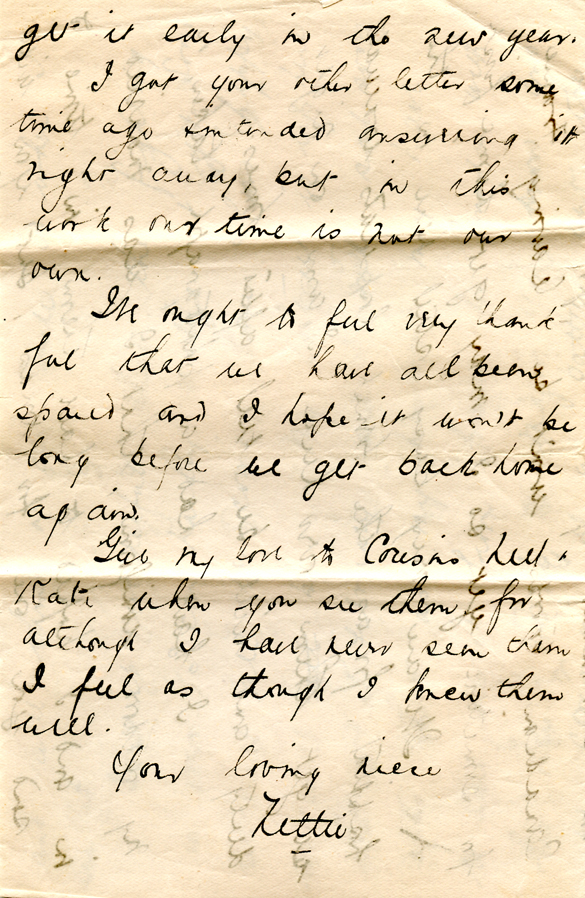 get it early in the new year.
I got your other letter some
time ago & intended answering it
right away, but in this
work our time is not our
own.
We ought to feel very thank
ful that we have all been
spared and I hope it won't be
long before we get back home
again.
Give my love to Cousins Nell &
Kate when you see them for
although I have never seen them
I feel as though I knew them
well.
Your loving niece
Nettie